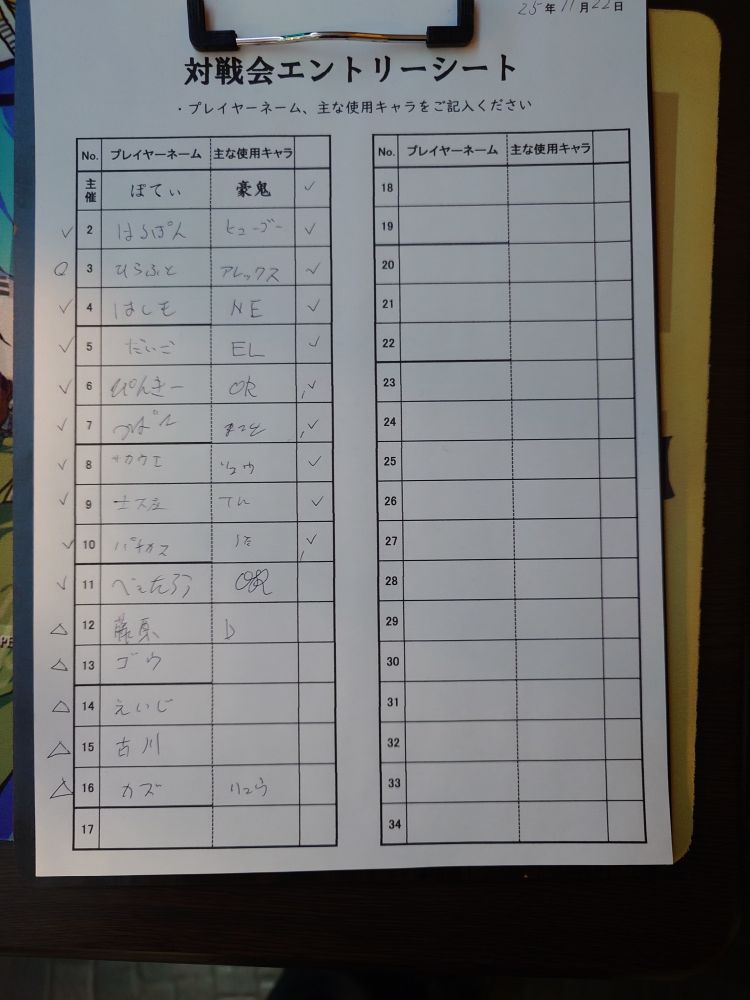 25年11月22日
対戦会エントリーシート
・プレイヤーネーム、主な使用キャラをご記入ください
No. プレイヤーネーム 主な使用キャラ
主催 ぽてぃ 豪鬼 ✓
✓ 2 はるぽん ヒューゴー ✓
3 ひらふと アレックス ✓
✓ 4 はしも NE ✓
✓ 5 だいご EL ✓
✓ 6 ぴんきー OR ✓
✓ 7 まこと ✓
✓ 8 サカウエ リュウ ✓
✓ 9 ✓
✓ 10 バチカス ✓
✓ 11 べえたろう OR
△ 12 藤原 D
△ 13 ゴウ
△ 14 えいじ
△ 15 古川
△ 16 カズ リュウ
17
No. プレイヤーネーム 主な使用キャラ
18
19
20
21
22
23
24
25
26
27
28
29
30
31
32
33
34